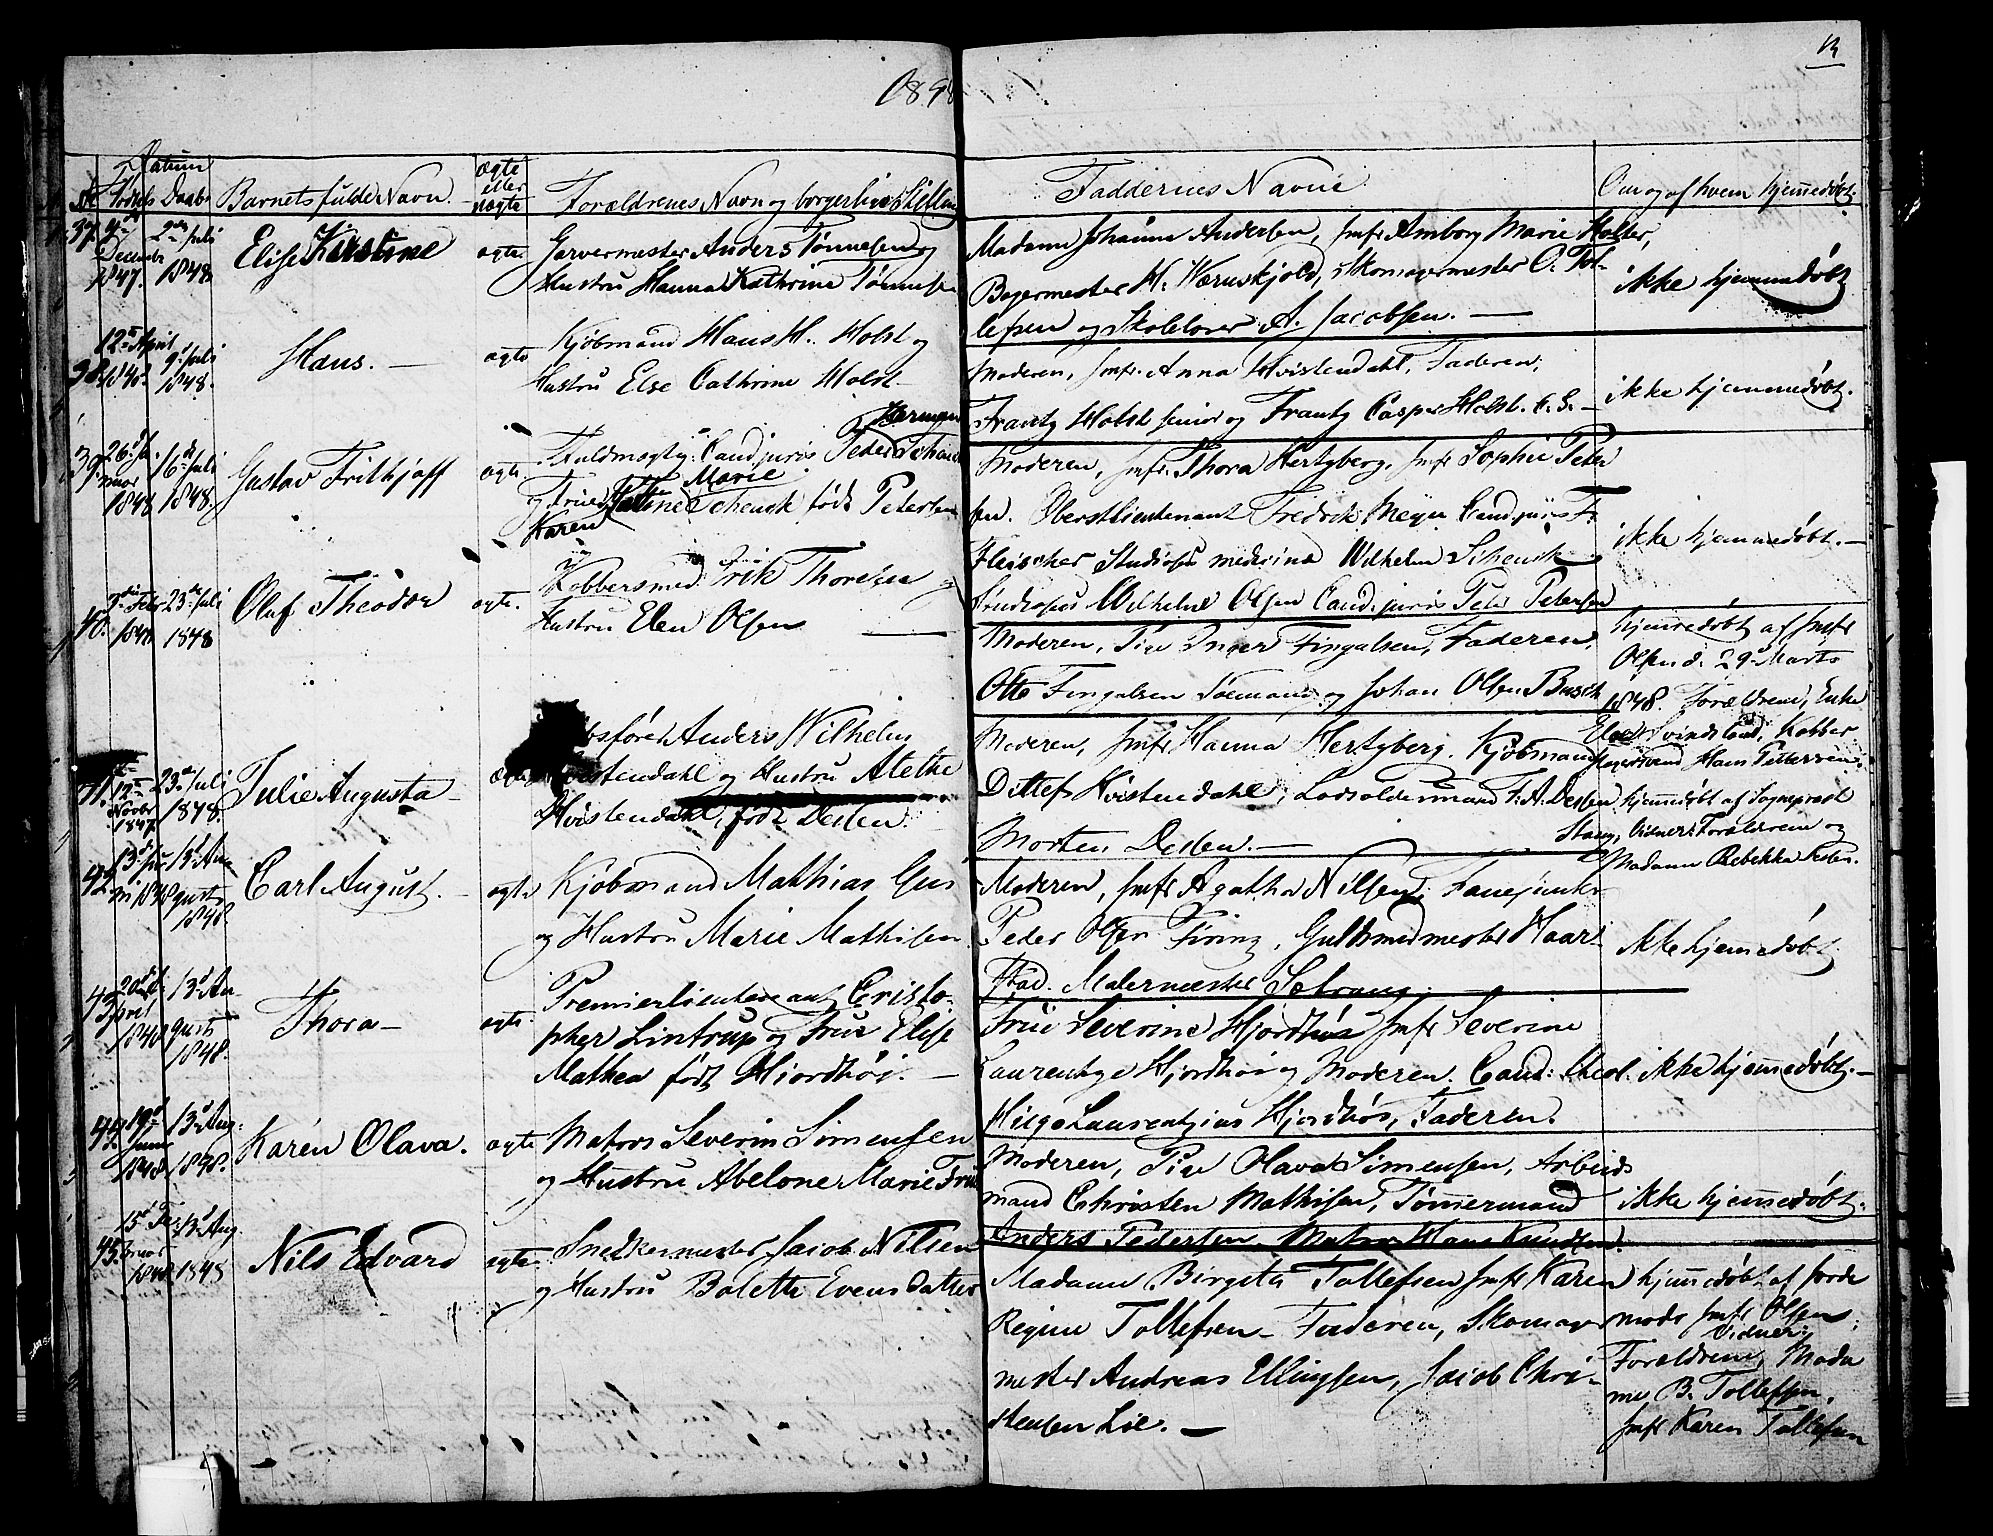 1848
13
Datum
№ Fødsels Daabs Barnets fulde Navn. ægte eller uægte Forældrenes Navn og borgerlige Stilling Faddernes Navne Om og af hvem hjemedøbt
37. 4de December 1847. 2den Juli 1848 Elise Kirstine ægte Garvermester Anders Tønnesen og
Hustru Hanna Kathrine Tønnesen
Madame Johanna Andersen, Jmfr Amborg Marie Holter,
Bagermester H. Wærnskjold, Skomagermester O. Tol-
lefsen og Skolelærer A. Jacobsen. —
ikke hjemmedøbt
38. 12te April 1848. 9de Juli 1848. Hans. — ægte Kjøbmand Hans H. Holst og
Hustru Else Cathrine Holst.
Moderen, Jmfr. Anna Hvistendahl, Faderen,
Frantz Holst senior og Frantz Casper Holst.
ikke hjemmedøbt.
39. 26de Januar 1848 16de Juli 1848. Gustav Frithjoff ægte Fuldmægtig Cand juris Peder Herman Schenck
og Frue Karen Marie Schenck født Petersen
Moderen, Jmfr. Thora Hertzberg, Jmfr Sophie Peter
sen. Oberstlieutenant Fredrik Meyer Cand juris F.
Fleischer Studiosus medicinæ Wilhelm Schenck
Studiosus Wilhelm Olsen Cand. juris Peter Petersen
ikke hjemmedøbt. —
40. Febr 1848 23de Juli 1848 Oluf Theodor ægte. Kobbersmed Erik Thoresen og
Hustru Elen Olsen —
Moderen, Pige Inger Fingalsen, Faderen,
Otte Fingalsen Sømand og Johan Olsen Busch
hjemedøbt af Jmfr
Olsen d. 29de Marts
1848. Forældrene, Enke
41. 12te Novbr 1847. 23de Juli 1848. Julie Augusta — ægte Anders Wilhelm
Hvistendahl og Hustru Alethe
Hvistendahl, født Dessen.
Moderen, Jmfr Hanna Hertzberg. Kjøbmand
Ditlef Hvistendahl, Lodsoldermand F. A. Dessen
Morten Dessen. —
hjemedøbt af Sogneprest
Stang, Vidner: Forældrene og
Madame Rebekka
42. 13de Juni 1848 13de Augusti 1848. Carl August. — ægte Kjøbmand Mathias
og Hustru Marie Mathisen
Moderen, Jmfr Agatha Nilsen, Fanejunker
Peder Olsen Firing, Guldsmedmester Haar
stad. Malermester
ikke hjemedøbt.
43. April 1848 13de August 1848. Thora — ægte Premierlieutenant Cristo-
pher Lintrup og Frue Elise
Mathea født Hjordhøi. —
Frue Severine Hjordhøi Jmfr Severine
Laurentze Hjordhøi og Moderen. Cand: theol.
Laurentzius Hjordhøi, Faderen.
ikke hjemedøbt. —
44. 19de Januar 1848. 13de Aug. 1848. Karen Olava. ægte Matros Severin Simensen
og Hustru Abelone Marie
Moderen, Pige Olava Simensen, Arbeids
mand Christen Mathisen, Tømmermand
Anders Pedersen, Matros Hans Knudsen.
ikke hjemedøbt.
45. 15de Februar 1848 13de Aug. 1848 Nils Edvard ægte. Snedkermester Jacob Nilsen
og Hustru Bolette Evensdatter
Madame Birgita Tollefsen Jmfr Karen
Regine Tollefsen — Faderen, Skomager
mester Andreas Ellingsen, Jacob Chri-
stensen Lie. —
hjemedøbt af Jorde
moder Jmfr Olsen
Vidner:
Forældrene, Mada
me B. Tollefsen,
Jmfr Karen Tollefsen